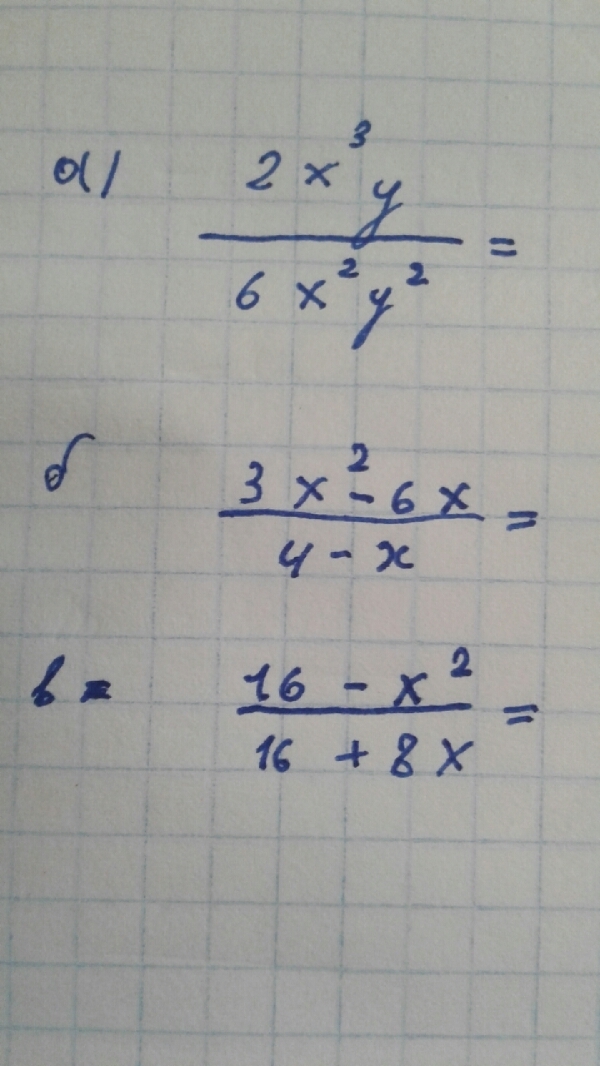 а) 2x³y
6x²y² =
б 3x² - 6x
4 - x =
в = 16 - x²
16 + 8x =